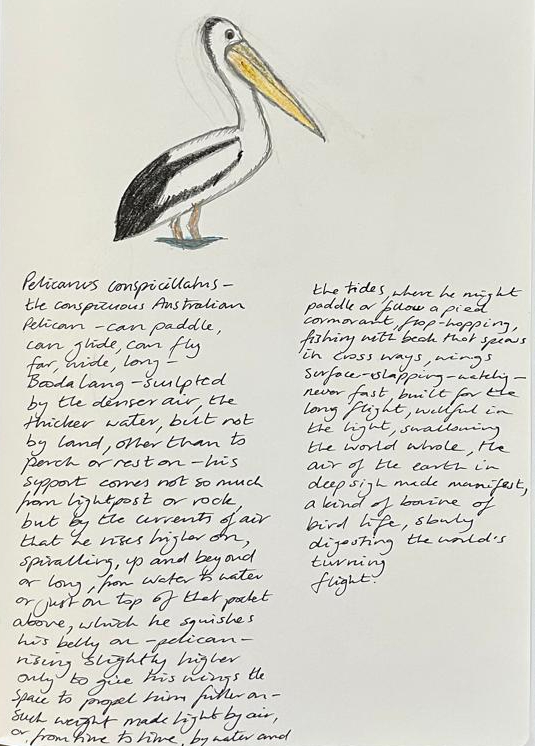 Pelicanus conspicillatus –
the conspicuous Australian
Pelican – can paddle,
can glide, can fly
far, wide, long –
Boodalang – sculpted
by the denser air, the
thicker water, but not
by land, other than to
perch or rest on – his
support comes not so much
from lightpost or rock,
but by the currents of air
that he rises higher on,
spiralling, up and beyond
or long, from water to water
or just on top of that pocket
above, which he squishes
his belly on – pelican –
rising slightly higher
only to give his wings the
space to propel him further on –
such weight made light by air,
or, from time to time, by water and
the tides, where he might
paddle or follow a pied
cormorant, flop-hopping,
fishing with beak that spears
in cross ways, wings
surface-slapping – watching –
never fast, built for the
long flight, in
the light, swallowing
the world whole, the
air of the earth in
deep sigh made manifest,
a kind of bovine of
bird life, slowly
digesting the world's
turning
flight.